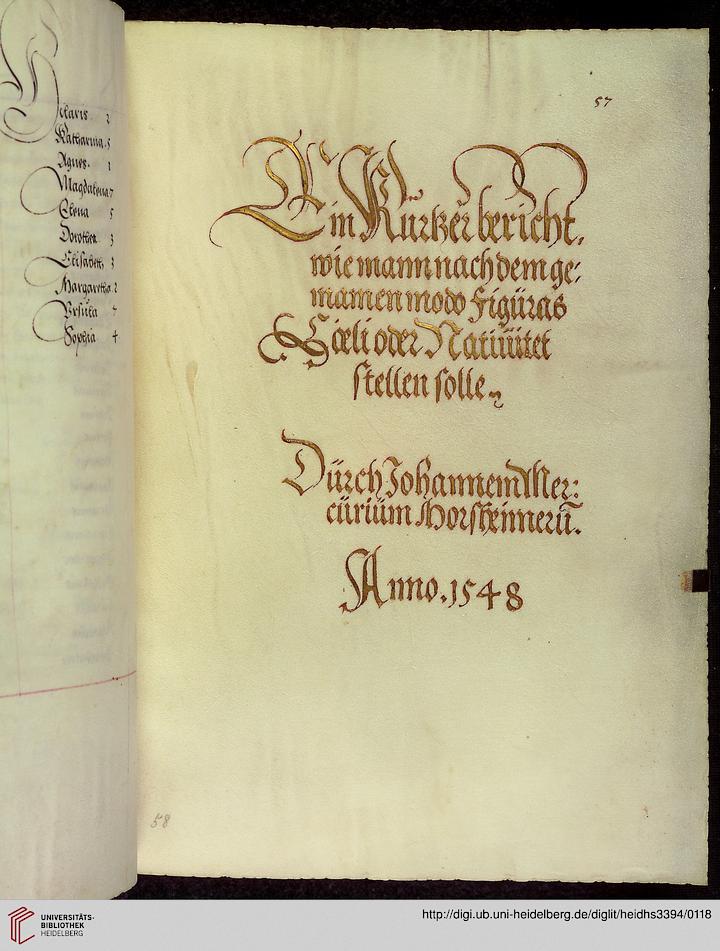 Hilaris 2
Katharina 5
Agnes. 1
Magdalena 7
Elena 5
Dorothea 3
Elisabeth 3
Margaretha 2
Vrsula 7
Sophia 4
57
Ein Kürtzer bericht,
wie mann nach dem ge:
mainen modo Figüras
Cœli oder Natiüitet
stellen solle.
Dürch Johannem Mer:
cüriüm Morsheimerū.
Anno. 1548
58
UNIVERSITÄTS-
BIBLIOTHEK
HEIDELBERG
http://digi.ub.uni-heidelberg.de/diglit/heidhs3394/0118